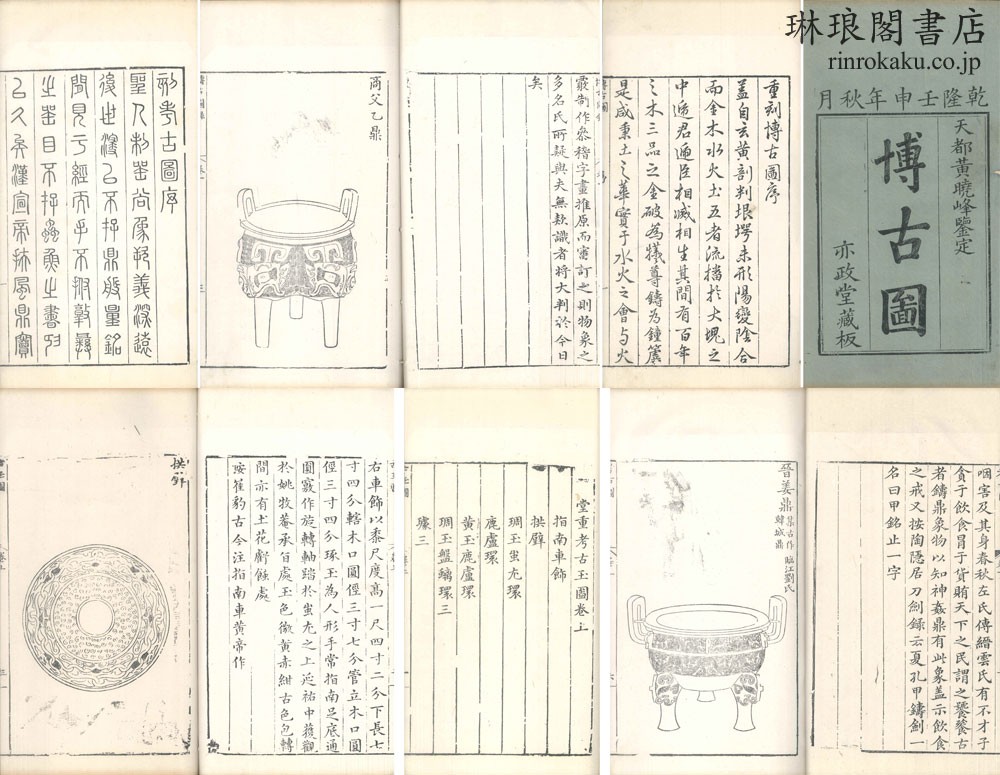 琳琅閣書店
rinrokaku.co.jp
乾隆壬申年秋月
天都黃曉峰鑒定
博古圖
亦政堂藏板
重刻博古圖序
蓋自玄黃剖判垠堮未形陽變陰合
而金木水火土五者流擋於大塊之
中遞君遞臣相减相生其間有百年
之木三品之金破為犧尊鑄為鐘簴
是咸秉土之華實于水火之會与火
靈制作參稽字畫推原而審訂之則物象之
多名氏所疑與夫無欵識者將大判於今日
矣
商父乙鼎
刻考古圖序
聖人制器尚象起義深遠
後世漫以不存鼎殷量銘
間見于經而乎不敦彝
之器目不存蟲魚之書
以久矣漢宣帝風鼎寶
咽害及其身春秋左氏傳縉雲氏有不才子
貪于飲食冒于貨賄天下之民謂之饕餮古
者鑄鼎象物以知神姦鼎有此象蓋示飲食
之戒又按陶隱居刀劍録云夏孔甲鑄劍一
名曰甲銘止一字
晉姜鼎
臨江劉氏
集古作
韓城鼎
堂重考古玉圖卷上
指南車飾
拱璧
琱玉蚩尤環
鹿盧環
黃玉鹿盧環
琱玉盤螭環三
璩三
右車飾以黍尺度高一尺四寸二分下長七
寸四分轄木口圓徑三寸七分管立木口圓
徑三寸四分琢玉為人形手常指南足底通
圓竅作旋轉軸踏於蚩尤之上延祐中獲觀
於姚牧菴承旨處玉色微黃赤紺古色包轉
間亦有土花齧蝕處
按崔豹古今注指南車黃帝作
拱璧